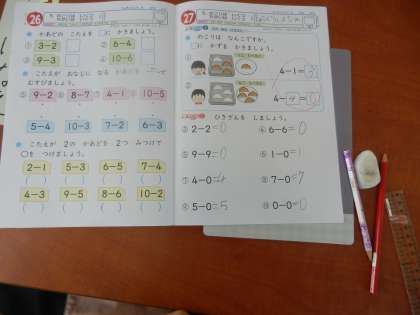 26
かあどの こたえを □に かきましょう。
① 3-2
② 6-4
③ 9-3
④ 10-6
こたえが おなじに なる
むすびましょう。
⑤ 9-2
⑥ 8-7
⑦ 4-1
⑧ 10-5
5-4
10-3
7-2
6-3
こたえが 2の かあどを 2つ みつけて
○を つけましょう。
2-1
5-3
6-5
7-4
( )
( )
( )
( )
4-3
9-5
8-6
10-2
( )
( )
( )
( )
27
のこりは なんこですか。
□に かずを かきましょう。
①
4-1=3
②
4-4=0
ひきざんを しましょう。
③ 2-2=0
④ 6-6=0
⑤ 9-9=0
⑥ 1-0=1
⑦ 4-0=4
⑧ 7-0=7
⑨ 5-0=5
⑩ 0-0=0